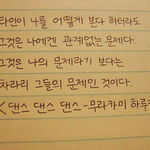 타인이 나를 어떻게 본다 하더라도
그것은 나에겐 관계없는 문제다.
그것은 나의 문제라기 보다는
차라리 그들의 문제인 것이다.
<댄스 댄스 댄스 - 무라카미 하루